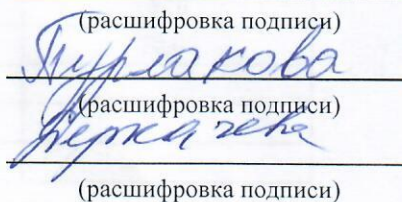 (расшифровка подписи)
Бурлакова
(расшифровка подписи)
Деркачева
(расшифровка подписи)